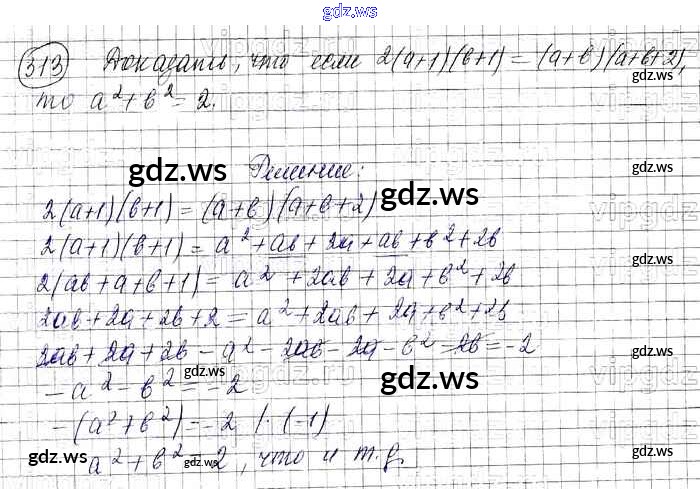 gdz.ws
313 Доказать, что если 2(a+1)(b+1) = (a+b)(a+b+2),
то a²+b² = 2.
gdz.ws
Решение:
gdz.ws gdz.ws
2(a+1)(b+1) = (a+b)(a+b+2)
2(a+1)(b+1) = a²+ab+2a+ab+b²+2b
2(ab+a+b+1) = a²+2ab+2a+b²+2b
2ab+2a+2b+2 = a²+2ab+2a+b²+2b
2ab+2a+2b-a²-2ab-2a-b²-2b=-2
gdz.ws
-a²-b²=-2
gdz.ws gdz.ws
-(a²+b²)=-2 |·(-1)
a²+b²=2, что и т.д.
gdz.ws gdz.ws